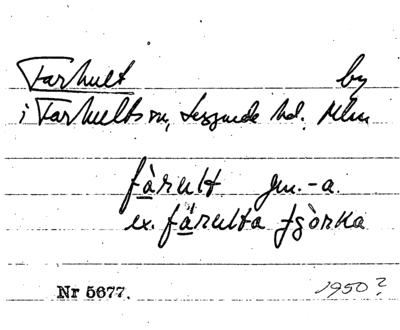 Farhult by
i Farhults sn, Luggude hd. Mlm
fàrult gm. -a.
ex. fàrulta fjòrka
Nr 5677.
1950?